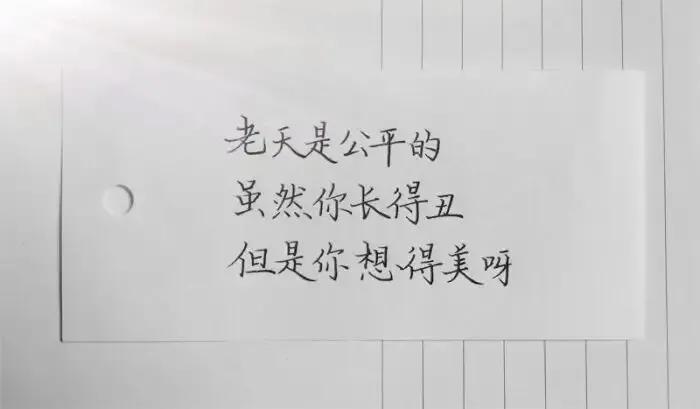 老天是公平的
虽然你长得丑
但是你想得美呀